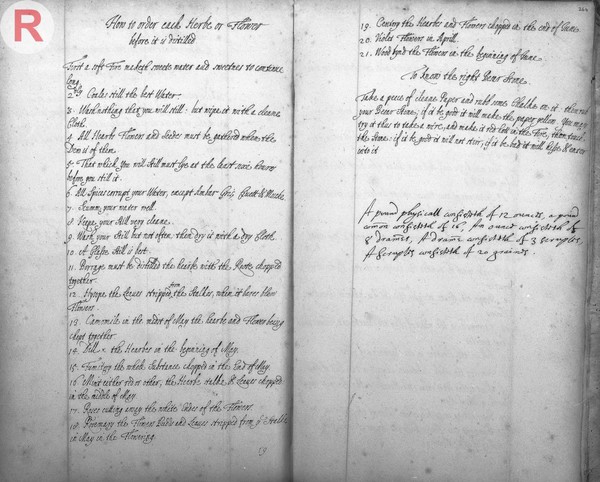 R
How to order each Herbe or Flower
before it is distilled
First a soft Fire maketh sweete water and sweetnes to continue
long
2ly Coales still the best Water
3. Wash nothing that you will still: but wipe it with a cleane
Cloth
4. All Hearbs Flowers and Seedes must be gathered when the
Dew is of them
5. That which You will Still must lye at the least
before you still it
6. All Spices corrupt your Water, except Amber Muske
7. Scumm your water well
8. Keepe your Still very cleane
9. Wash your Still but not often, then dry it with a dry Cloth
10. A Glasse Still is best
11. Borrage must be distilled the hearbe with the Roots chopped
together
12. Hysope the Leaves stripped from the Stalkes, when it beres blew
Flowers
13. Camomile in the midst of May the hearbe and Flower being
chopt together
14. Dill the Hearbes in the beginning of May
15. Fumitory the whole Substance chopped in the End of May
16 Mint either or other, the Hearbe stalke & Leaves chopped
in the middle of May
17. Roses cutting away the white Endes of the Flowers
18. Rosemary the Flowers Budds and Leaves stripped from ye Stalke
in May in the Flowring
19
19. the Hearbes and Flowers chopped in the end of June
20. Violet Flowers in Aprill
21. Woodbynd the Flowers in the beginning of June
To know the right Stone
Take a peece of cleane Paper and rubb some Chalke on it then rub
your Stone; if it be good it will make the paper yellow You may
try it thus to take a wire, and make it red hott in the Fire, then touch
the Stone: if it be good it will not stirr; if it be bad it will &
into it
A pound physicall consisteth of 12 ounces, a pound
comon consisteth of 16, An ounce consisteth of
8 Drames, A drame consisteth of 3 scruples,
A scruple consisteth of 20 graines